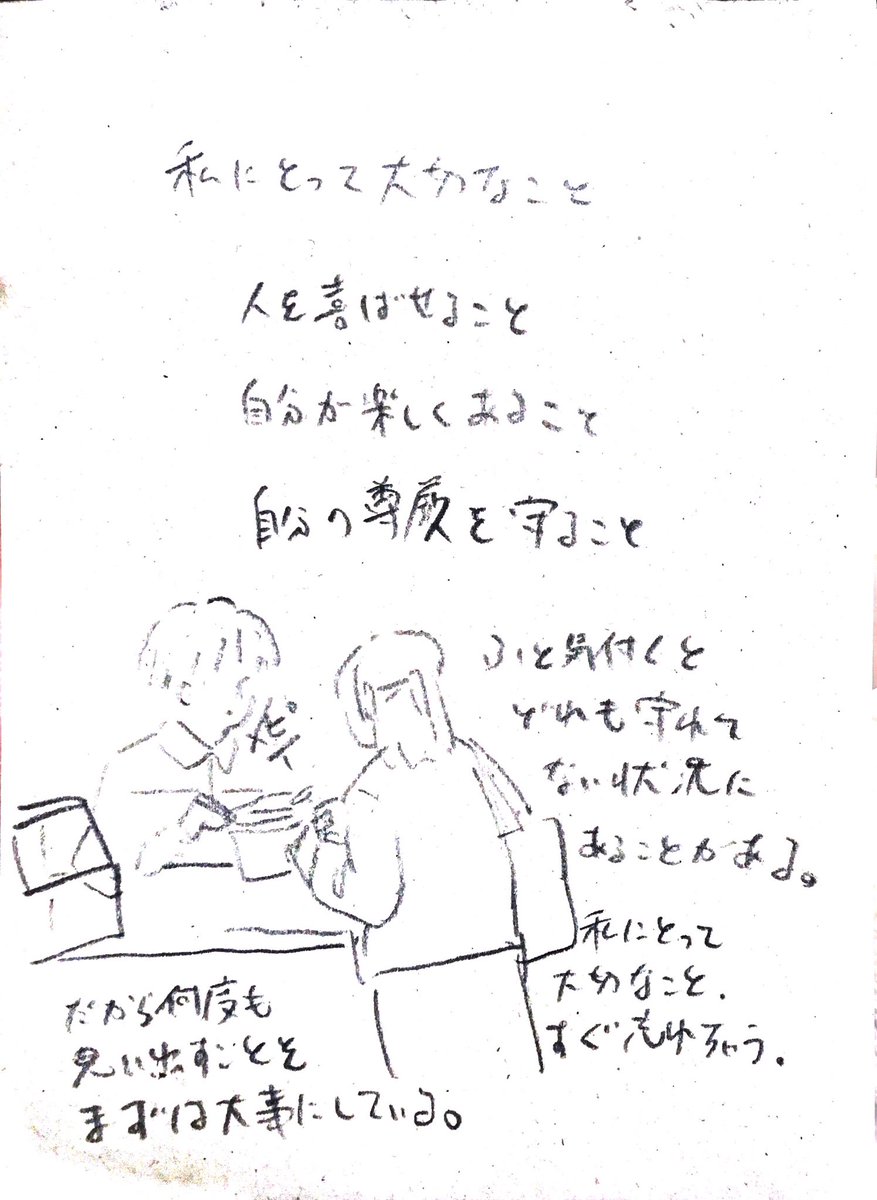 私にとって大切なこと
人を喜ばせること
自分が楽しくあること
自分の尊厳を守ること
ふと気付くと
どれも守れて
ない状況に
あることがある。
私にとって
大切なこと.
すぐ流れちゃう.
だから何度も
思い出すことを
まずは大事にしている。